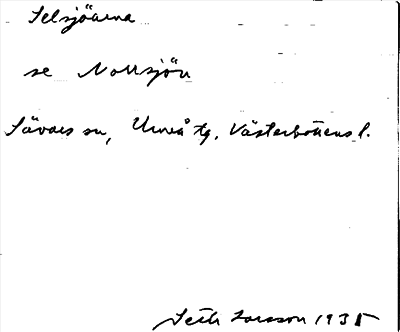 Selsjöarna
se Norrsjön
Sävars sn, Umeå tg, Västerbottens l.
Seth Larsson 1935